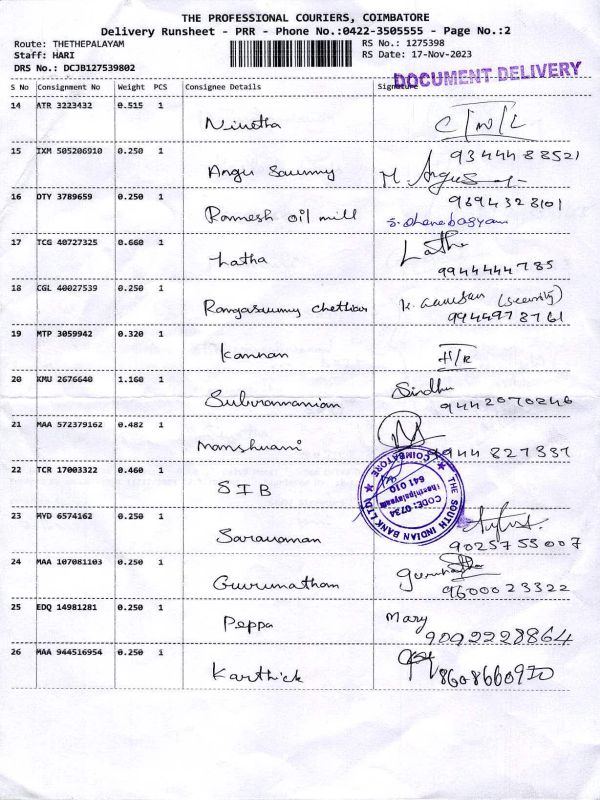 THE PROFESSIONAL COURIERS, COIMBATORE
Delivery Runsheet - PRR - Phone No.:0422-3505555 - Page No.:2
Route: THETHEPALAYAM RS No.: 1275398
Staff: HARI RS Date: 17-Nov-2023
DRS No.: DCJB127539802
DOCUMENT DELIVERY
S No Consignment No Weight PCS Consignee Details Signature
14 ATR 3223432 0.515 1 Nivetha
9344488521
15 IXM 505206910 0.250 1 Angu Saumy M. Angus
9694328101
16 DTY 3789659 0.250 1 Ramesh oil mill S. Dhanabagyam
17 TCG 40727325 0.660 1 Latha Latha
9944444785
18 CGL 40027539 0.250 1 Rangasaumy chettiar (security)
9944978761
19 MTP 3059942 0.320 1 Kannan H/R
20 KMU 2676640 1.160 1 Subramanian Sindhu
9442070246
21 MAA 572379162 0.482 1
22 TCR 17003322 0.460 1 SIB
THE SOUTH INDIAN BANK LTD
COIMBATORE
641 010
CODE: 0734
23 MYD 6574162 0.250 1 Saravanan
9025755007
24 MAA 107081103 0.250 1 Gurunatham gurunatha
9600023322
25 EDQ 14981281 0.250 1 Peppa Mary
9092228864
26 MAA 944516954 0.250 1 Karthick
8608660970